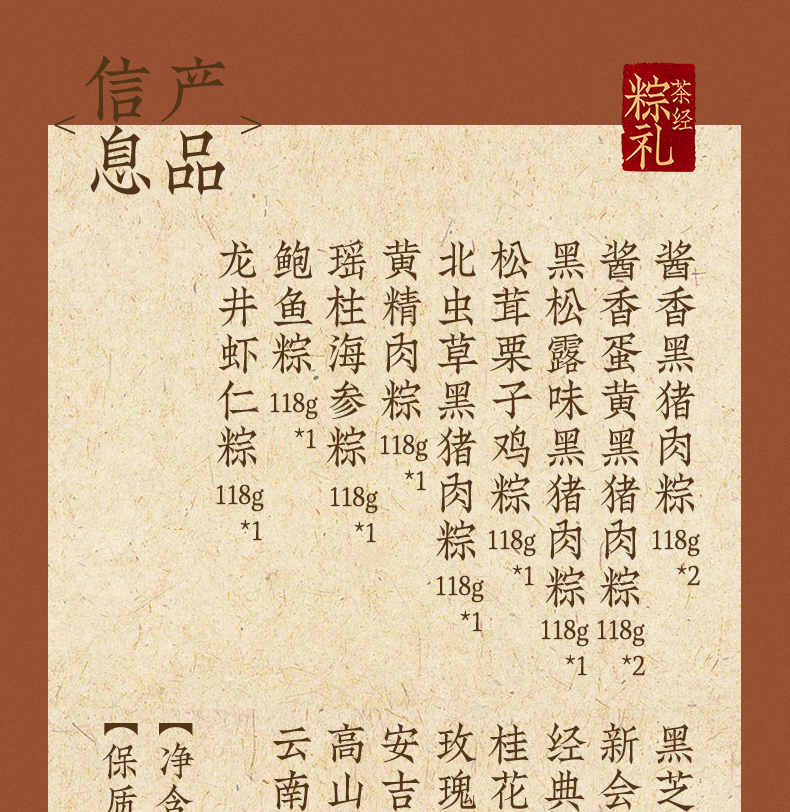 产品
信息
茶经
粽礼
酱香黑猪肉粽118g*2
酱香蛋黄黑猪肉粽118g*2
黑松露味黑猪肉粽118g*1
松茸栗子鸡粽118g*1
北虫草黑猪肉粽118g*1
黄精肉粽118g*1
瑶柱海参粽118g*1
鲍鱼粽118g*1
龙井虾仁粽118g*1
黑芝
新会
经典
桂花
玫瑰
安吉
高山
云南
【净含
【保质